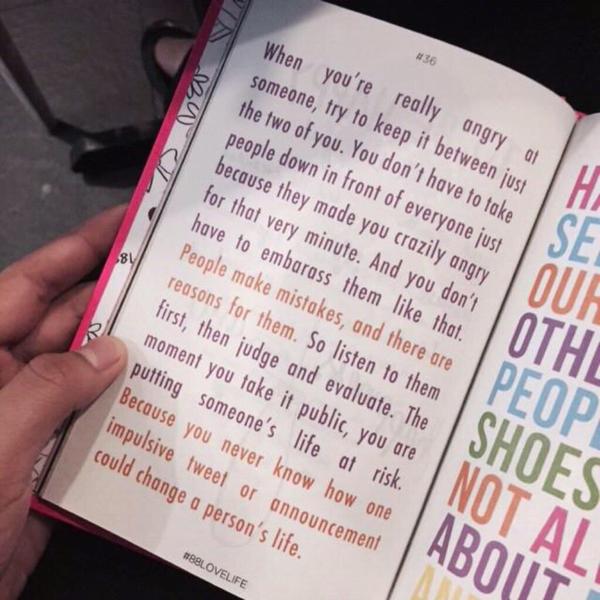 #36
When you're really angry at
someone, try to keep it between just
the two of you. You don't have to take
people down in front of everyone just
because they made you crazily angry
for that very minute. And you don't
have to embarass them like that.
People make mistakes, and there are
reasons for them. So listen to them
first, then judge and evaluate. The
moment you take it public, you are
putting someone's life at risk.
Because you never know how one
impulsive tweet or announcement
could change a person's life.
#88LOVELIFE
OUR
NOT
ABOUT